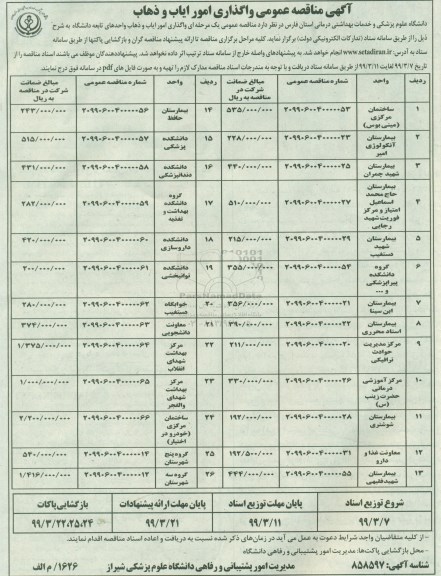 آگهی مناقصه عمومی واگذاری امور ایاب و ذهاب
دانشگاه علوم پزشکی و خدمات بهداشتی درمانی استان فارس در نظر دارد مناقصه عمومی یک مرحله ای واگذاری امور ایاب و ذهاب واحدهای تابعه دانشگاه، به شرح
ذیل را از طریق سامانه ستاد (تدارکات الکترونیکی دولت) برگزار نماید. کلیه مراحل برگزاری مناقصه تا ارائه پیشنهاد مناقصه گران و بازگشایی پاکتها از طریق سامانه
ستاد به آدرس: www.setadiran.ir انجام خواهد شد. به پیشنهادهای واصله خارج از سامانه ستاد ترتیب اثر داده نخواهد شد. پیشنهاددهندگان موظف می باشند اسناد مناقصه را از
تاریخ ۹۹/۳/۷ لغایت ۹۹/۳/۱۱ از طریق سامانه ستاد دریافت و با توجه به مندرجات اسناد مناقصه مدارک لازم را تهیه و به صورت فایل های pdf در سامانه فوق درج نمایند.
واحد شماره مناقصه عمومی مبالغ ضمانت شرکت در مناقصه به ریال واحد شماره مناقصه عمومی مبالغ ضمانت شرکت در مناقصه به ریال
۱ ساختمان مرکزی (مینی بوس) ۲۰۹۹۰۶۰۰۴۰۰۰۰۰۵۳ ۵۳۵/۰۰۰/۰۰۰ ۱۴ بیمارستان حافظ ۲۰۹۹۰۶۰۰۴۰۰۰۰۰۵۶ ۲۴۳/۰۰۰/۰۰۰
۲ بیمارستان آنکولوژی امیر ۲۰۹۹۰۶۰۰۴۰۰۰۰۰۲۳ ۲۴۸/۰۰۰/۰۰۰ ۱۵ دانشکده پزشکی ۲۰۹۹۰۶۰۰۴۰۰۰۰۰۵۷ ۵۱۵/۰۰۰/۰۰۰
۳ بیمارستان شهید چمران ۲۰۹۹۰۶۰۰۴۰۰۰۰۰۲۵ ۴۴۰/۰۰۰/۰۰۰ ۱۶ دانشکده دندانپزشکی ۲۰۹۹۰۶۰۰۴۰۰۰۰۰۵۸ ۴۳۱/۰۰۰/۰۰۰
۴ بیمارستان حاج محمد اسماعیل امتیاز و مرکز فوریت شهید رجایی ۲۰۹۹۰۶۰۰۴۰۰۰۰۰۲۷ ۵۱۰/۰۰۰/۰۰۰ ۱۷ گروه دانشکده بهداشت و تغذیه ۲۰۹۹۰۶۰۰۴۰۰۰۰۰۵۹ ۲۸۲/۰۰۰/۰۰۰
۵ بیمارستان شهید دستغیب ۲۰۹۹۰۶۰۰۴۰۰۰۰۰۲۹ ۲۱۵/۰۰۰/۰۰۰ ۱۸ دانشکده داروسازی ۲۰۹۹۰۶۰۰۴۰۰۰۰۰۶۰ ۴۲۰/۰۰۰/۰۰۰
۶ گروه دانشکده پیراپزشکی و ... ۲۰۹۹۰۶۰۰۴۰۰۰۰۰۵۴ ۳۵۵/۰۰۰/۰۰۰ ۱۹ دانشکده توانبخشی ۲۰۹۹۰۶۰۰۴۰۰۰۰۰۶۱ ۲۰۰/۰۰۰/۰۰۰
۷ بیمارستان ابن سینا ۲۰۹۹۰۶۰۰۴۰۰۰۰۰۲۱ ۳۵۶/۰۰۰/۰۰۰ ۲۰ خوابگاه دستغیب ۲۰۹۹۰۶۰۰۴۰۰۰۰۰۶۲ ۲۸۰/۰۰۰/۰۰۰
۸ بیمارستان استاد محرری ۲۰۹۹۰۶۰۰۴۰۰۰۰۰۲۲ ۳۹۰/۰۰۰/۰۰۰ ۲۱ معاونت دانشجویی ۲۰۹۹۰۶۰۰۴۰۰۰۰۰۶۳ ۳۷۴/۰۰۰/۰۰۰
۹ مرکز مدیریت حوادث ترافیکی ۲۰۹۹۰۶۰۰۴۰۰۰۰۰۲۰ ۲۱۱/۰۰۰/۰۰۰ ۲۲ مرکز بهداشت شهدای انقلاب ۲۰۹۹۰۶۰۰۴۰۰۰۰۰۶۴ ۱/۳۷۵/۰۰۰/۰۰۰
۱۰ مرکز آموزشی درمانی حضرت زینب (س) ۲۰۹۹۰۶۰۰۴۰۰۰۰۰۲۶ ۳۳۰/۰۰۰/۰۰۰ ۲۳ مرکز بهداشت شهدای والفجر ۲۰۹۹۰۶۰۰۴۰۰۰۰۰۶۵ ۱/۰۰۰/۰۰۰/۰۰۰
۱۱ بیمارستان شوشتری ۲۰۹۹۰۶۰۰۴۰۰۰۰۰۲۸ ۱۹۲/۰۰۰/۰۰۰ ۲۴ ساختمان مرکزی (خودرو در اختیار) ۲۰۹۹۰۶۰۰۴۰۰۰۰۰۶۶ ۲/۲۰۰/۰۰۰/۰۰۰
۱۲ معاونت غذا و دارو ۲۰۹۹۰۶۰۰۴۰۰۰۰۰۳۱ ۱۹۲/۵۰۰/۰۰۰ ۲۵ گروه پنج شهرستان ۲۰۹۹۰۶۰۰۴۰۰۰۰۰۱۴ ۵۴۰/۰۰۰/۰۰۰
۱۳ بیمارستان شهید فقیهی ۲۰۹۹۰۶۰۰۴۰۰۰۰۰۵۵ ۴۴۴/۰۰۰/۰۰۰ ۲۶ گروه سه شهرستان ۲۰۹۹۰۶۰۰۴۰۰۰۰۰۱۲ ۱/۴۱۶/۰۰۰/۰۰۰
شروع توزیع اسناد پایان مهلت توزیع اسناد پایان مهلت ارائه پیشنهادات بازگشایی پاکات
۹۹/۳/۷ ۹۹/۳/۱۱ ۹۹/۳/۲۱ ۹۹/۳/۲۲،۲۵،۲۴
- از کلیه متقاضیان واجد شرایط دعوت به عمل می آید در زمان‌های ذکر شده نسبت به دریافت و اعاده اسناد مناقصه اقدام نمایند.
- محل بازگشایی پاکت‌ها: مدیریت امور پشتیبانی و رفاهی دانشگاه
شناسه آگهی: ۸۵۸۵۹۷ مدیریت امور پشتیبانی و رفاهی دانشگاه علوم پزشکی شیراز ۱۶۲۶/ م الف